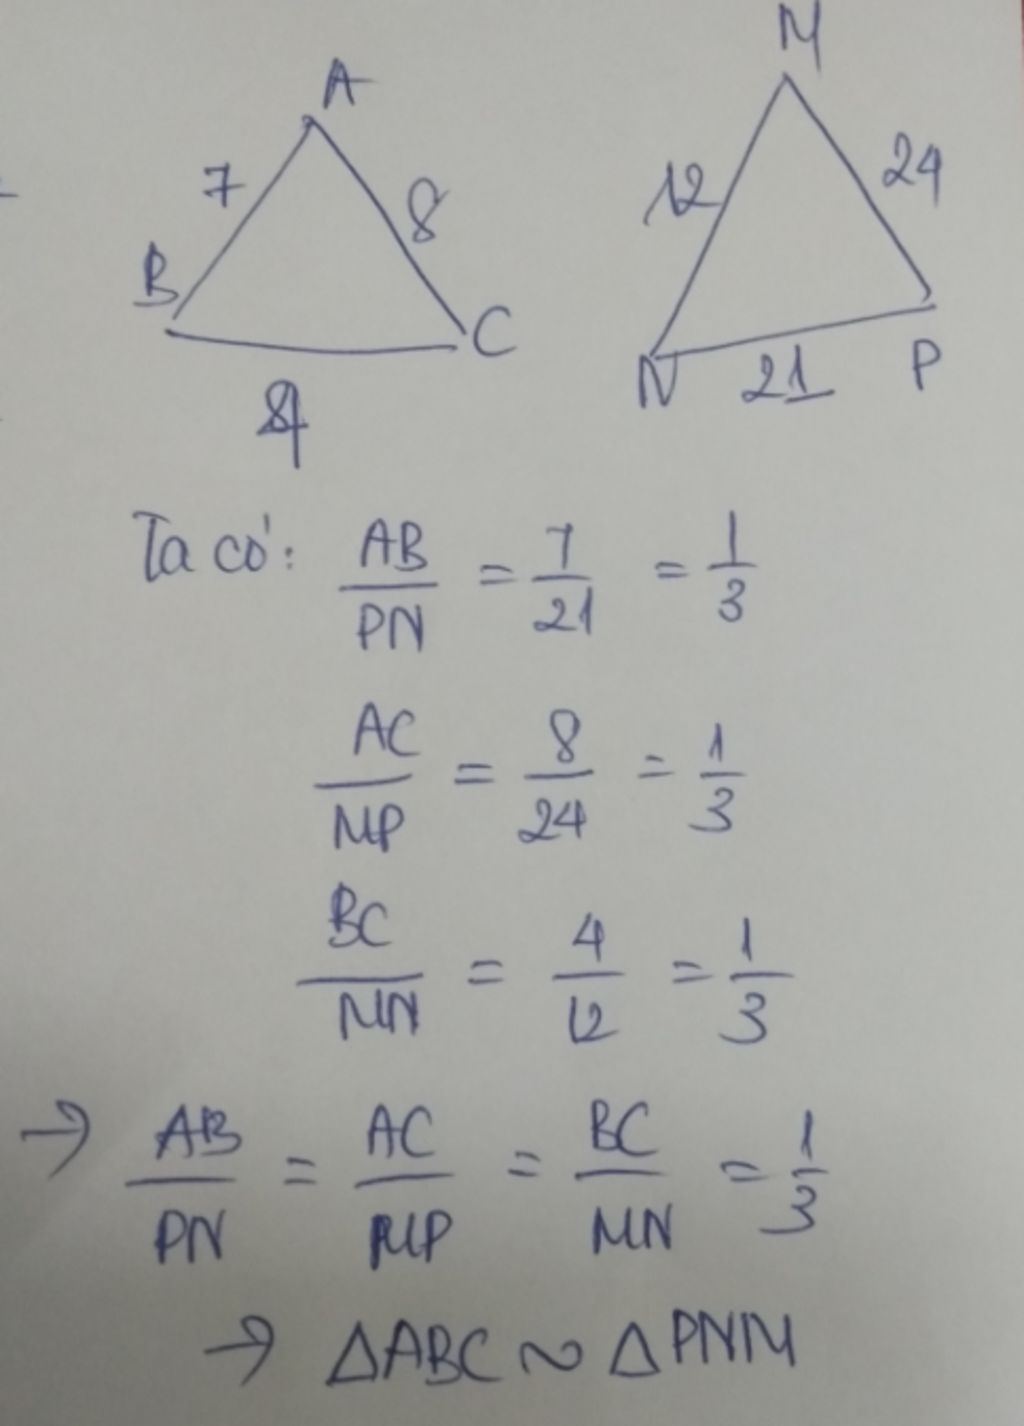 A
M
7
8
12
24
B
C
4
N
21
P
Ta có: AB/PN = 7/21 = 1/3
AC/MP = 8/24 = 1/3
BC/MN = 4/12 = 1/3
→ AB/PN = AC/MP = BC/MN = 1/3
→ ΔABC ~ ΔPNM